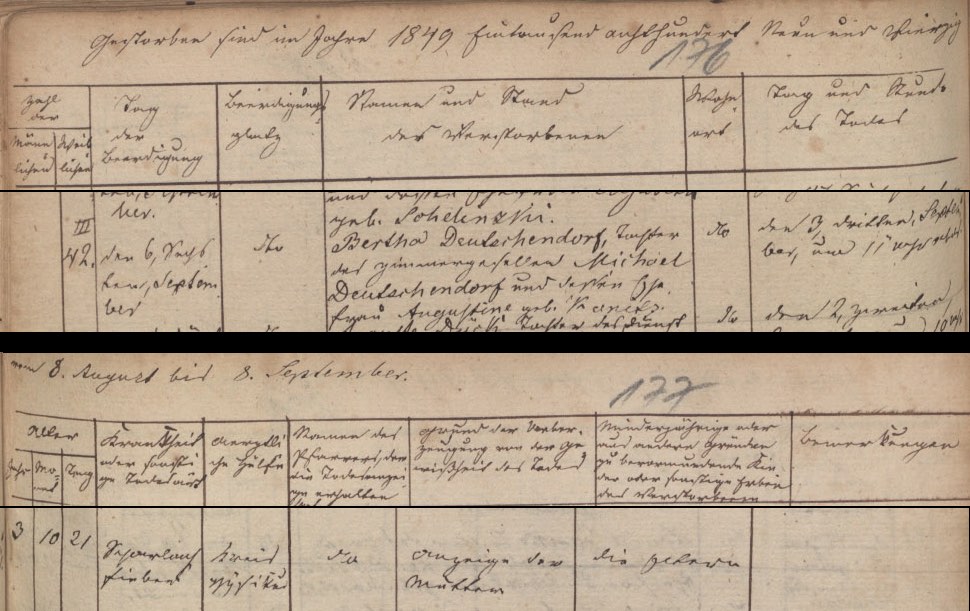 Gestorben sind im Jahre 1849 Eintausend achthundert Neun und Vierzig
176
Zahl der
Männ lichen
Weib lichen
Tag
der
Beerdigung
Beerdigungs
platz
Namen und Stand
des Verstorbenen
Wohn
ort
Tag und Stunde
des Todes
ber.
geb. Sohlenski.
III
42.
den 6, Sechs
ten, Septem
ber
dto
Bertha Deutschendorf, Tochter
des Zimmergesellen Michael
Deutschendorf und dessen Ehe
frau Augustine geb. Kanitz.
do
den 3, dritten, Septem
ber, um 11 Uhr
Tochter des Dienst
do
den 2, zweiten,
vom 8. August bis 8. September.
177
Alter
Jahr
Mo
nat
Tag
Krankheit
oder sonsti
ge Todesart
Aerztli
che Hülfe
Namen des
Pfarrers, dem
die Todesanzei
ge erhalten
Grund der Ueber-
zeugung von der Ge
wißheit des Todes
Minderjährige oder
aus andern Gründen
zu bevormundende Kin
der oder sonstige Erben
des Verstorbenen
Bemerkungen
3
10
21
Scharlach
fieber
Kreis
physikus
do
Anzeige der
Mutter
die Eltern